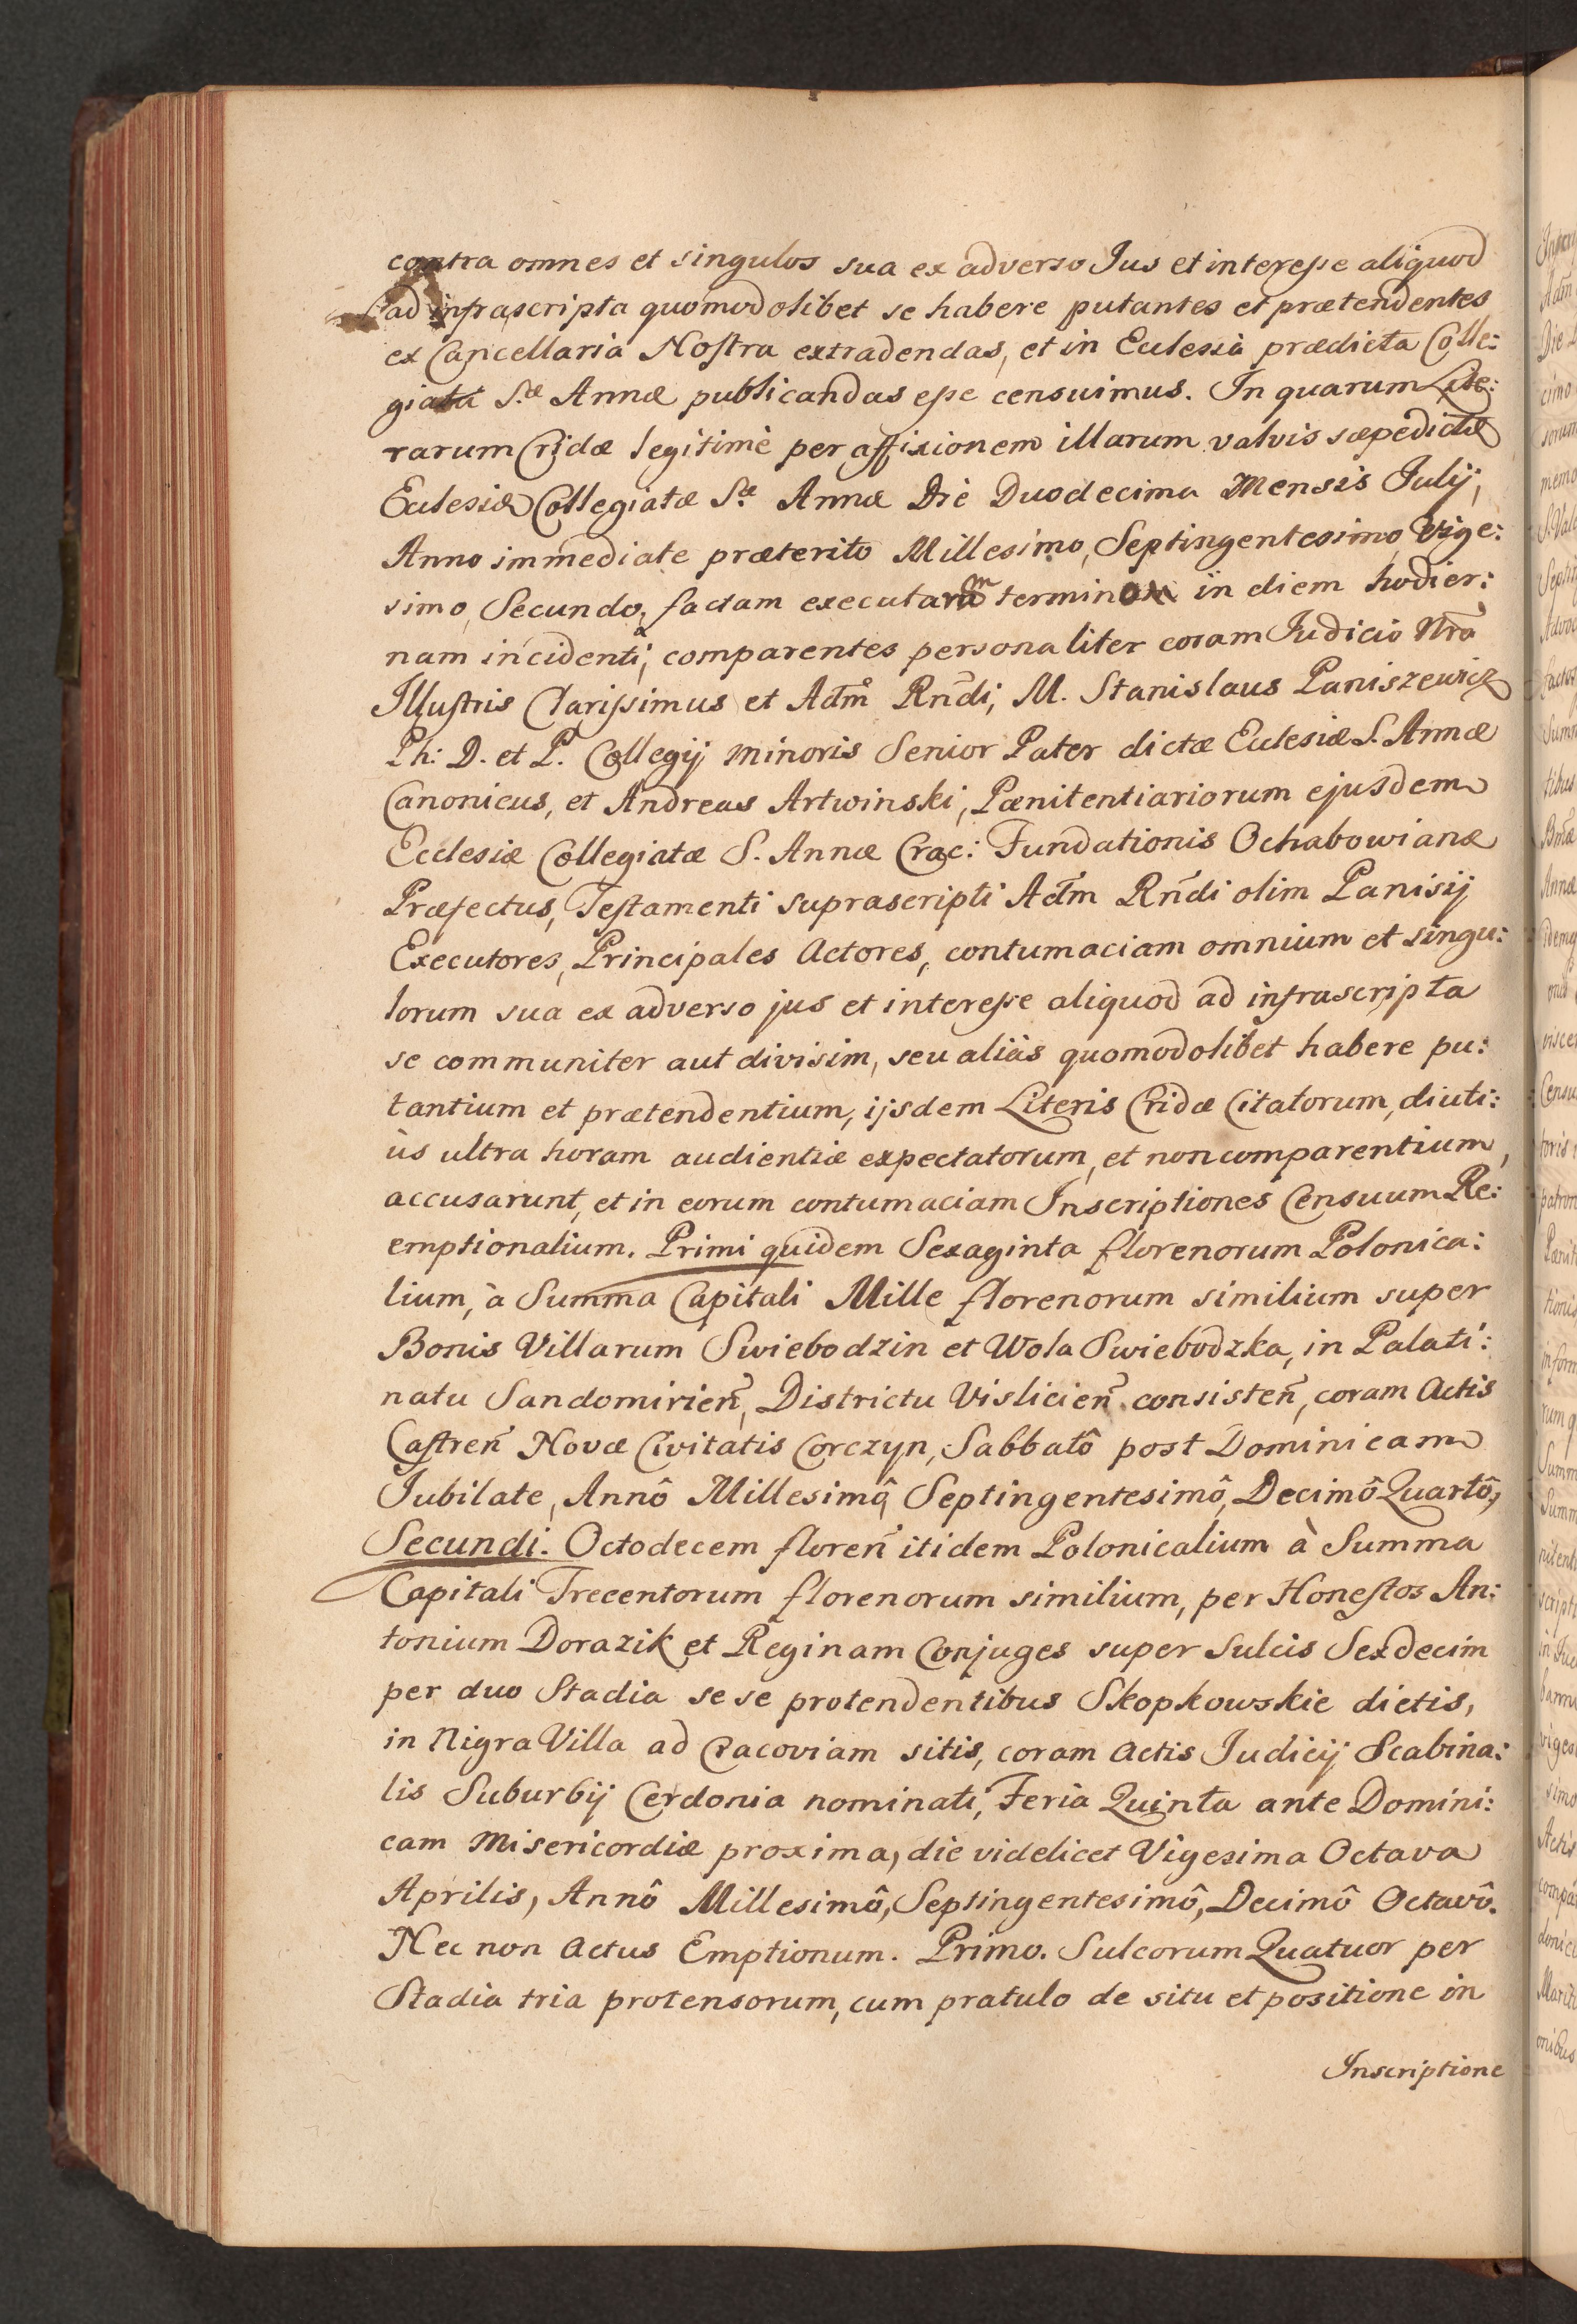 contra omnes et singulos sua ex adverso Jus et interesse aliquod
ad infrascripta quomodolibet se habere putantes et prætendentes
ex Cancellaria Nostra extradendas, et in Eclesia prædicta Colle:
giata S.æ Annæ publicandas esse censuimus. In quarum Lite:
rarum Cridæ legitimè per affixionem illarum valvis sæpedictæ
Eclesiæ Collegiatæ S.æ Annæ Die Duodecima Mensis Julij,
Anno immediate præterito Millesimo, Septingentesimo, Vige:
simo, Secundo, factam executam termino in diem hodier:
nam incidenti, comparentes personaliter coram Judicio Nrõ
Illustris Clarissimus et Adm̃ Rñdi, M. Stanislaus Paniszewicz
Ph: D. et P. Collegij minoris Senior Pater dictæ Eclesiæ S. Annæ
Canonicus, et Andreas Artwinski, Pænitentiariorum ejusdem
Ecclesiæ Collegiatæ S. Annæ Crac: Fundationis Ochabowianæ
Præfectus, Testamenti suprascripti Adm̃ Rñdi olim Panisij
Executores, Principales Actores, contumaciam omnium et singu:
lorum sua ex adverso jus et interesse aliquod ad infrascripta
se communiter aut divisim, seu aliàs quomodolibet habere pu:
tantium et prætendentium, ijsdem Literis Cridæ Citatorum, diuti:
ùs ultra horam audientiæ expectatorum, et non comparentium,
accusarunt, et in eorum contumaciam Inscriptiones Censuum Re:
emptionalium. Primi quidem Sexaginta florenorum Polonica:
lium, à Summa Capitali Mille florenorum similium super
Bonis Villarum Swiebodzin et Wola Swiebodzka, in Palati:
natu Sandomirien̄, Districtu Vislicien̄ consisten̄, coram Actis
Castren̄ Novæ Civitatis Corczyn, Sabbatô post Dominicam
Jubilate, Annô Millesimô, Septingentesimô, Decimô Quartô,
Secundi. Octodecem floren̄ itidem Polonicalium à Summa
Capitali Trecentorum florenorum similium, per Honestos An:
tonium Dorazik et Reginam Conjuges super Sulcis Sexdecim
per duo Stadia sese protendentibus Skopkowskie dictis,
in Nigra Villa ad Cracoviam sitis, coram Actis Judicij Scabina:
lis Suburbij Cerdonia nominati, Feria Quinta ante Domini:
cam Misericordiæ proxima, die videlicet Vigesima Octava
Aprilis, Annô Millesimô, Septingentesimô, Decimô Octavô.
Nec non Actus Emptionum. Primo. Sulcorum Quatuor per
Stadia tria protensorum, cum pratulo de situ et positione in
Inscriptione